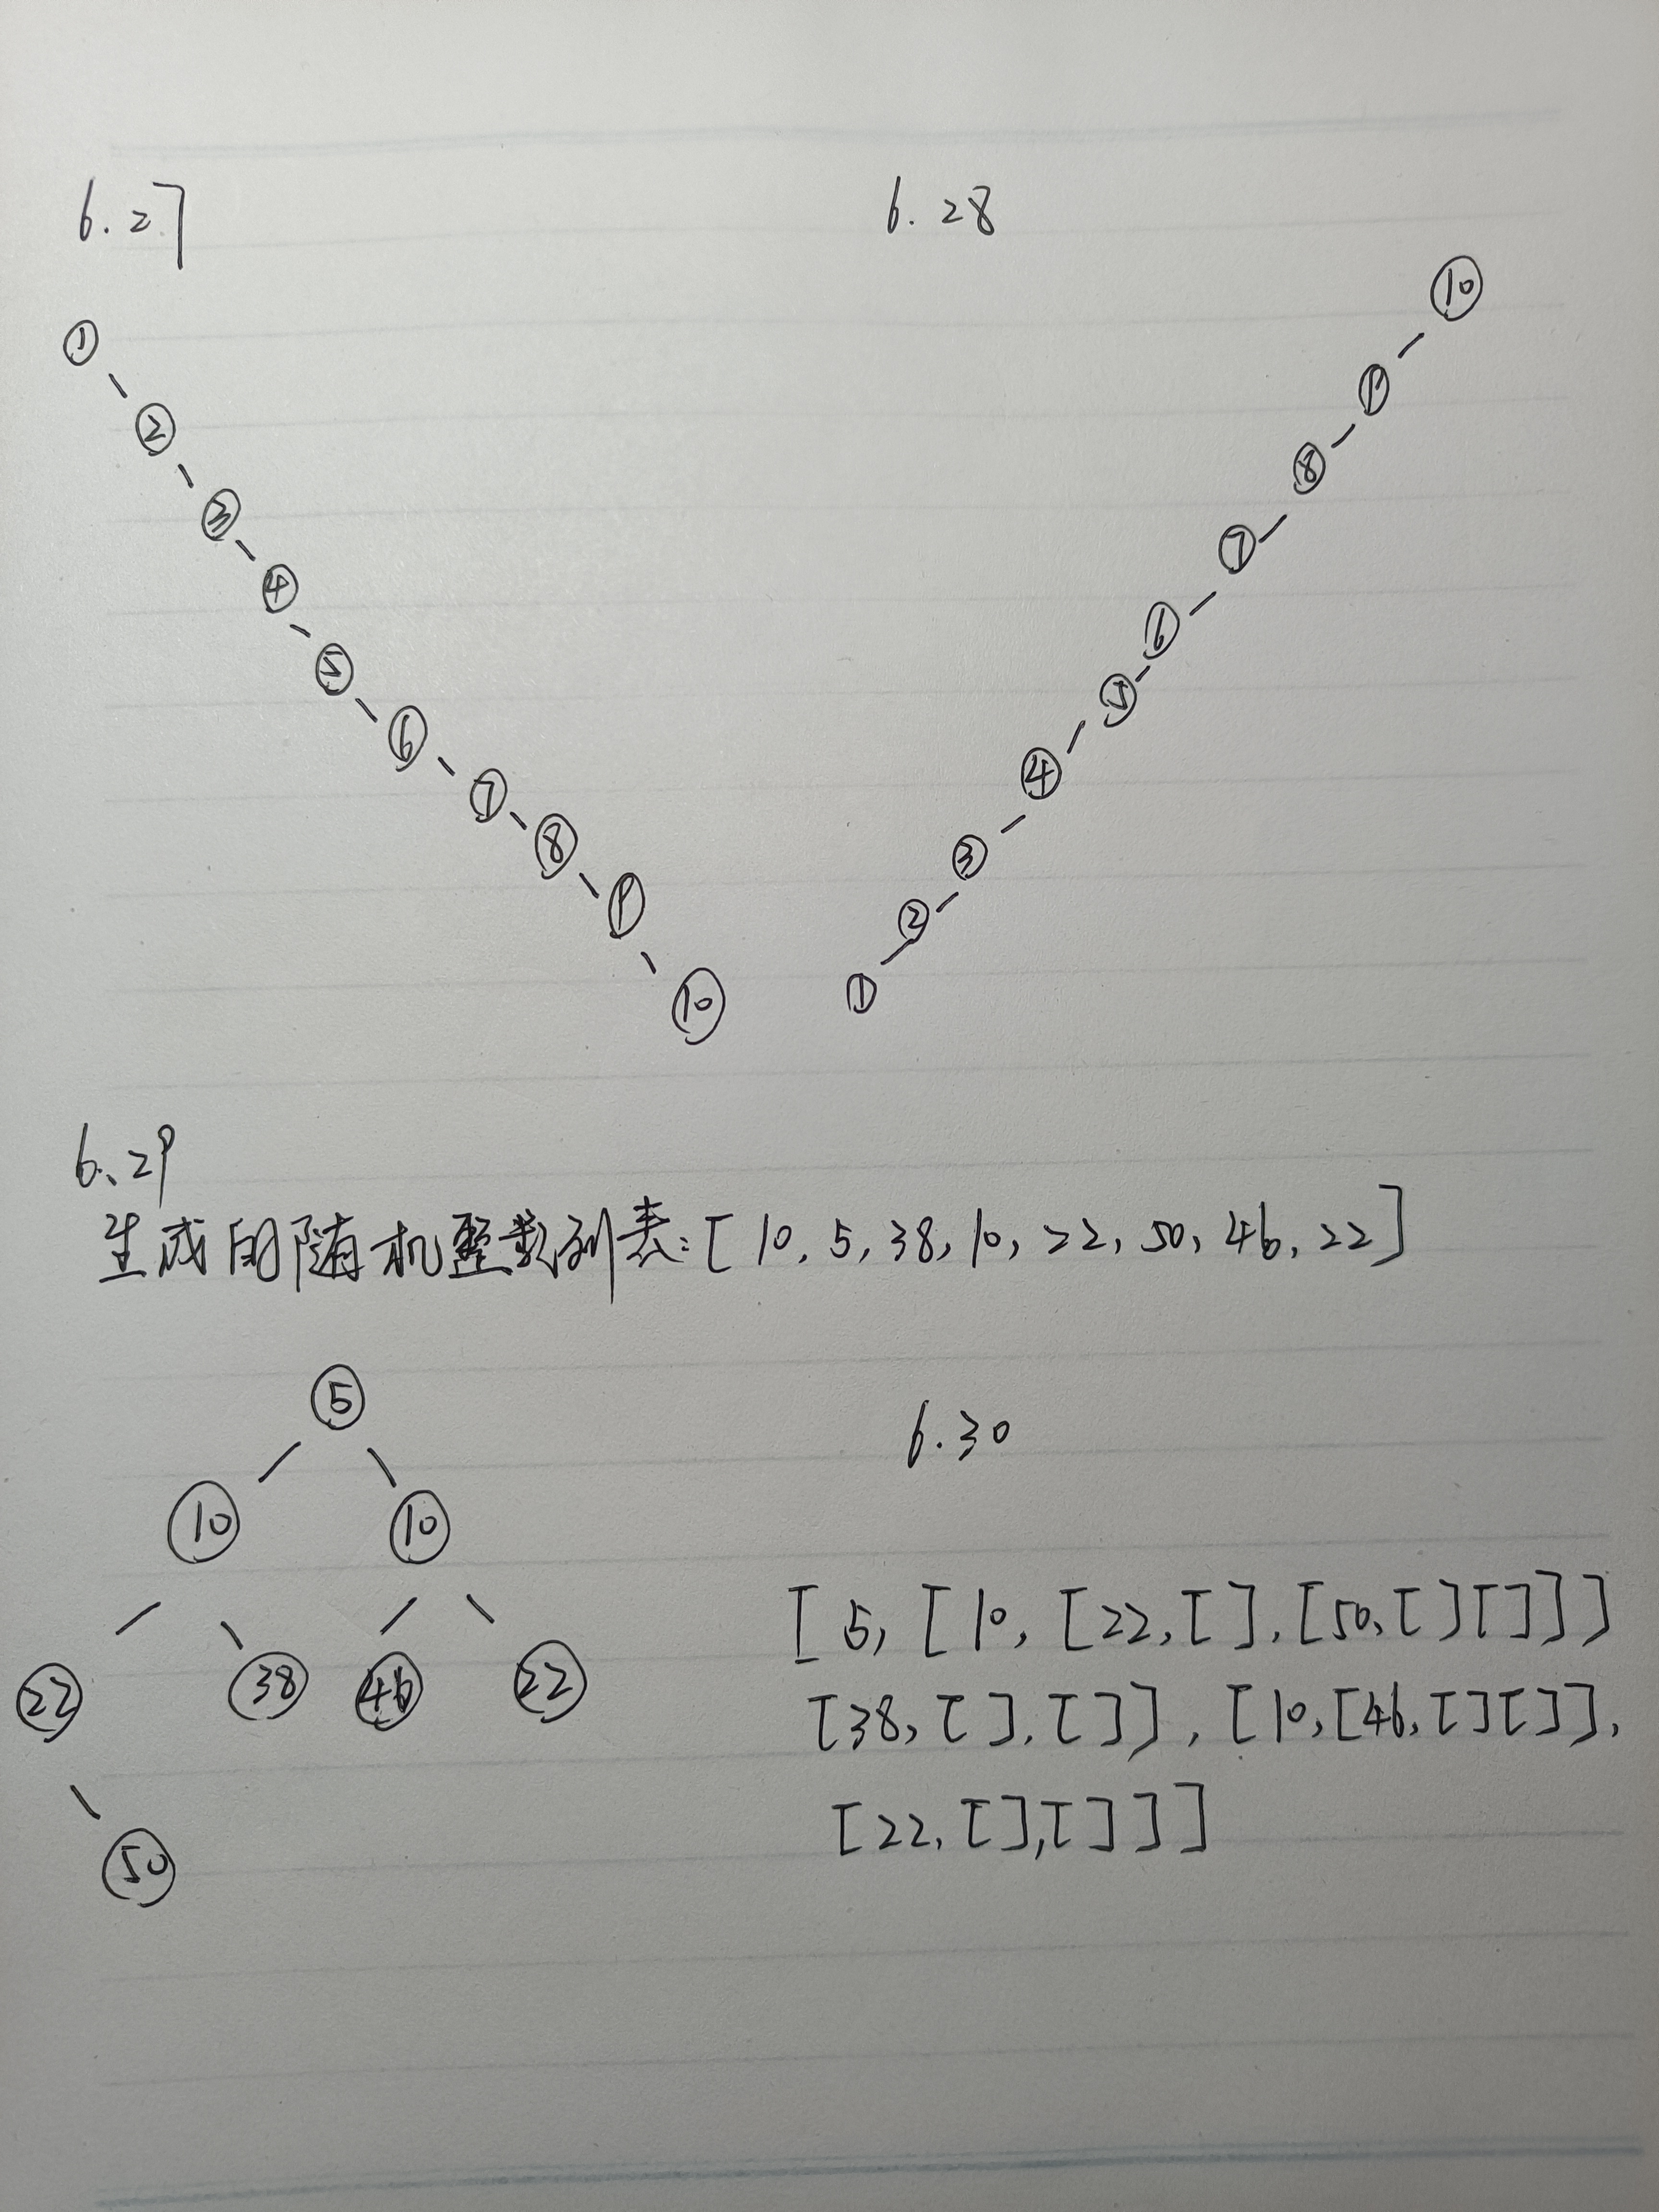 6.27
6.28
1
2
3
4
5
6
7
8
9
10
10
9
8
7
6
5
4
3
2
1
6.29
生成的随机整数列表:[10,5,38,10,22,50,46,22]
5
10 10
22 38 46 22
50
6.30
[5,[10,[22,[],[50,[][]]]
[38,[],[]],[10,[46,[][]],
[22,[],[]]]